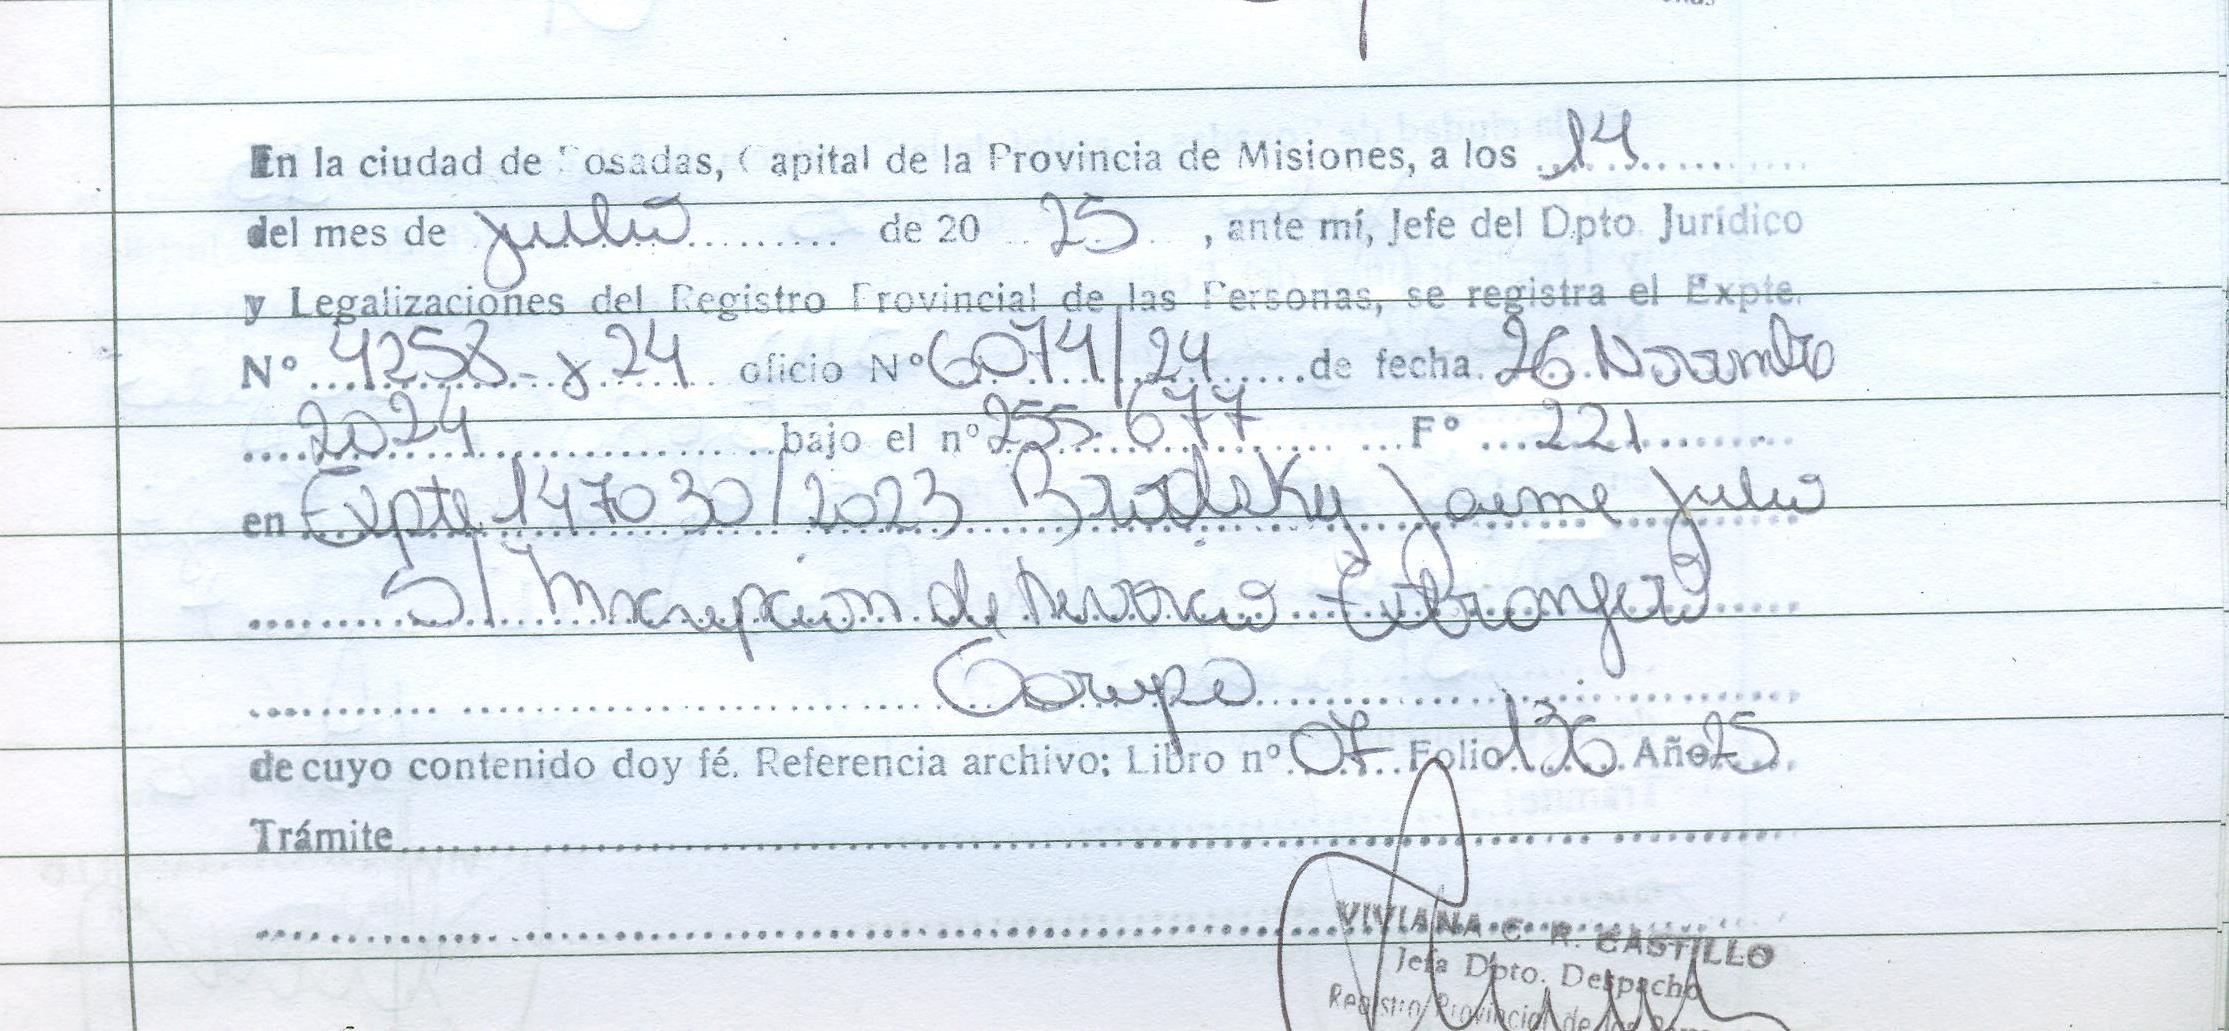 En la ciudad de Posadas, Capital de la Provincia de Misiones, a los 14
del mes de julio de 20 25, ante mí, Jefe del Dpto. Jurídico
y Legalizaciones del Registro Provincial de las Personas, se registra el Expte.
N° 4258 - y 24 oficio N° 6074/24 de fecha 26 Noviembre
2024 bajo el n° 255.677 F° 221
en Expte 147030/2023 Brodsky Jaime Julio
S/ Inscripcion de Divorcio Extranjero
Garupa
de cuyo contenido doy fé. Referencia archivo; Libro n° 07 Folio 136 Año 25
Trámite
VIVIANA C. R. CASTILLO
Jefa Dpto. Despacho
Registro Provincial de las